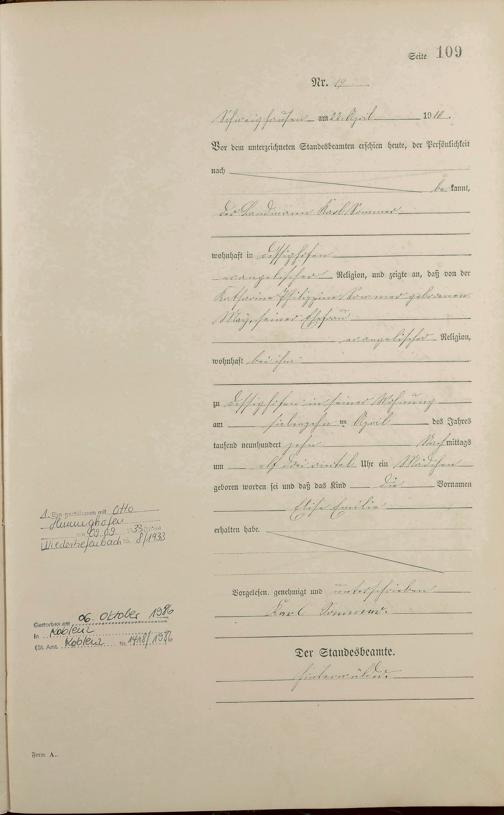 Seite 109
Nr. 19
Schweighausen am 22. April 1910.
Vor dem unterzeichneten Standesbeamten erschien heute, der Persönlichkeit
nach
be kannt,
der Landmann Karl Sommer
wohnhaft in Dessighofen
evangelischer Religion, und zeigte an, daß von der
Katharine Philippine Sommer geborenen
Ehefrau
evangelischer Religion,
wohnhaft bei ihm
zu Dessighofen in seiner Wohnung
am siebenzehn ten April des Jahres
tausend neunhundert zehn Nach mittags
um elf drei viertel Uhr ein Mädchen
geboren worden sei und daß das Kind die Vornamen
Elise Emilie
erhalten habe.
Vorgelesen, genehmigt und unterschrieben
Karl Sommer.
Der Standesbeamte.
1. Eheschliessung mit Otto
09.09.1933
Niedertiefenbach Nr. 8/1933
Gestorben am 06. Oktober 1986
in Koblenz
(St. Amt Koblenz Nr. 1418/1986
Form A.